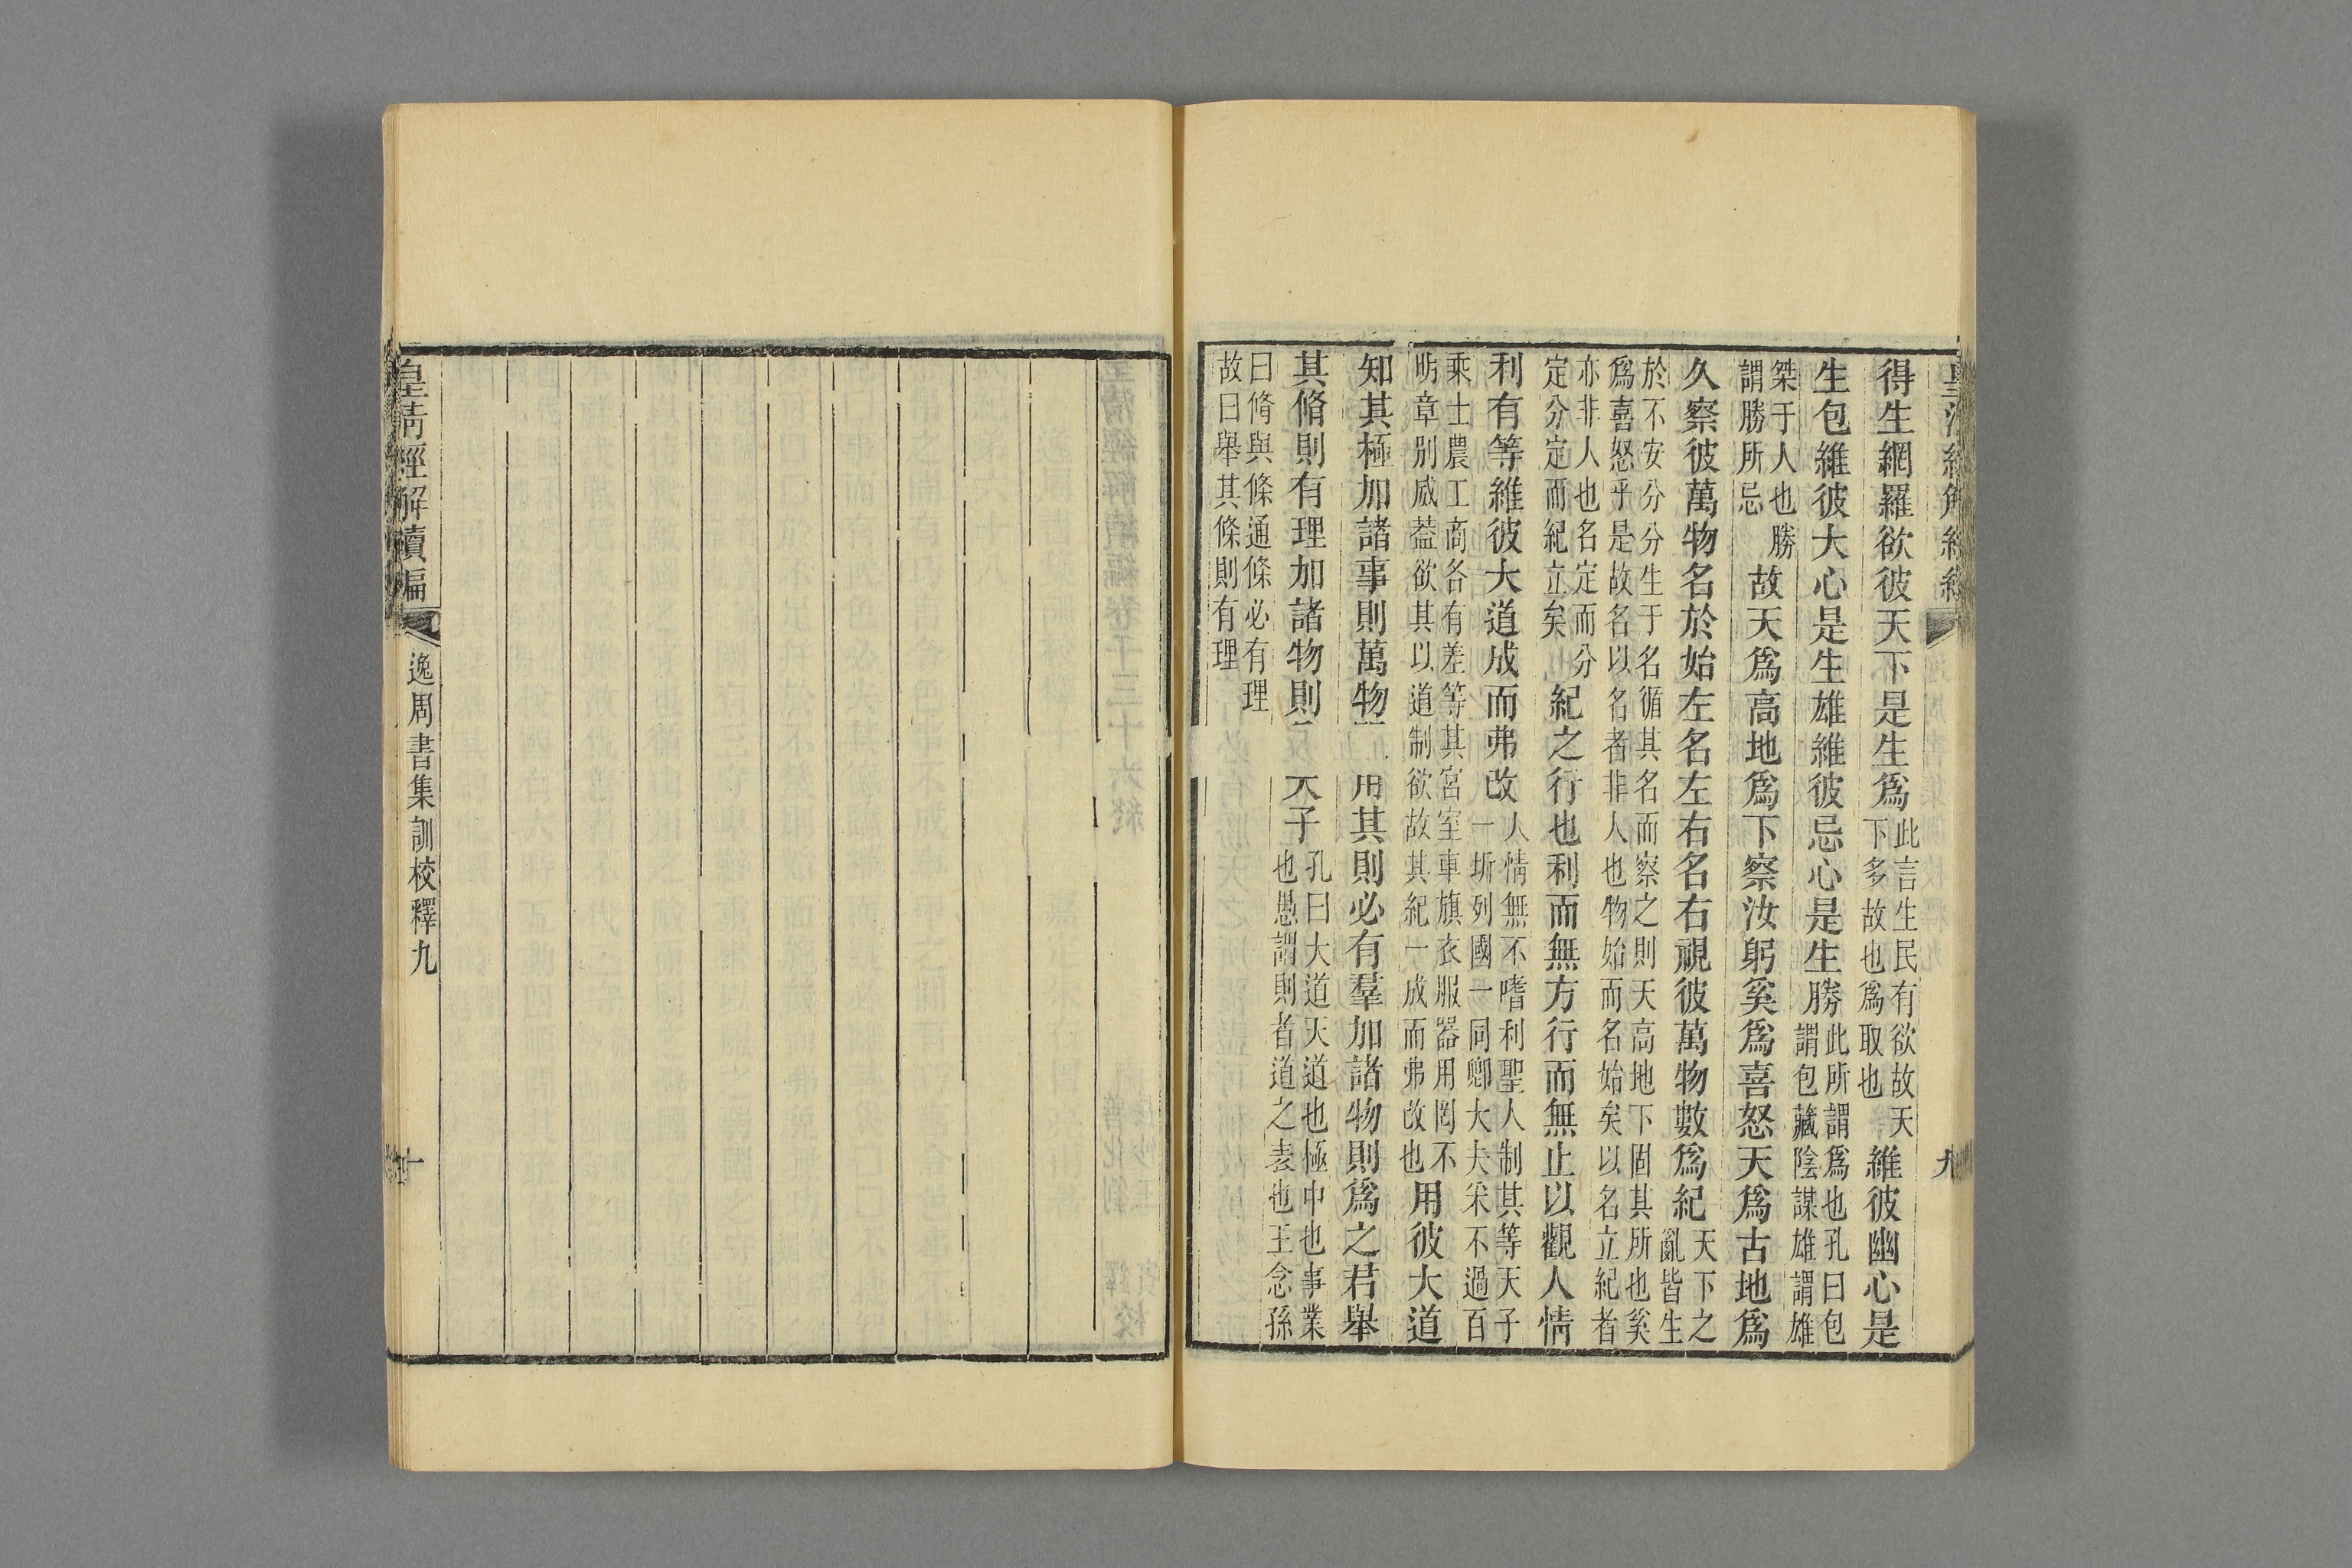 得生網羅欲彼天下是生爲此言生民有欲故天下多故也爲取也維彼幽心是
生包維彼大心是生雄維彼忌心是生勝此所謂爲也孔曰包謂包藏陰謀雄謂雄
桀于人也勝謂勝所忌故天爲高地爲下察汝躬奚爲喜怒天爲古地爲
久察彼萬物名於始左名左右名右視彼萬物數爲紀天下之亂皆生
於不安分分生于名循其名而察之則天高地下固其所也奚爲喜怒乎是故名以名者非人也物始而名始矣以名立紀者
亦非人也名定而分定分定而紀立矣紀之行也利而無方行而無止以觀人情
利有等維彼大道成而弗改人情無不嗜利聖人制其等天子一圻列國一同卿大夫采不過百
乘士農工商各有差等其宮室車旗衣服器用罔不昉章別威葢欲其以道制欲故其紀一成而弗改也用彼大道
知其極加諸事則萬物用其則必有羣加諸物則爲之君舉
其脩則有理加諸物則天子孔曰大道天道也極中也事業也愚謂則者道之表也王念孫
曰脩與條通條必有理故曰舉其條則有理
九
皇清經解續編
逸周書集訓校釋九
十